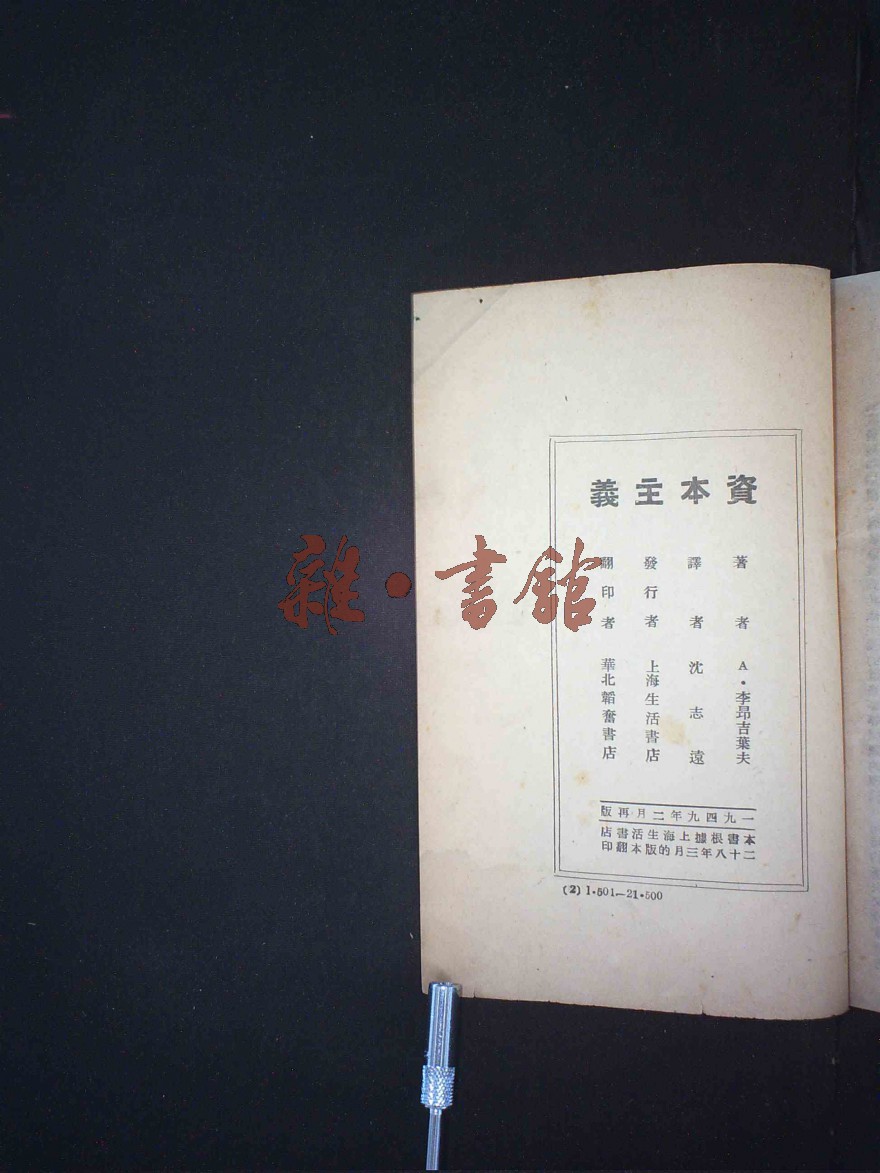 資本主義
著者 A·李昂吉葉夫
譯者 沈志遠
發行者 上海生活書店
翻印者 華北韜奮書店
一九四九年二月再版
本書根據上海生活書店
二十八年三月的版本翻印
(2) 1·501—21·500
雜·書館